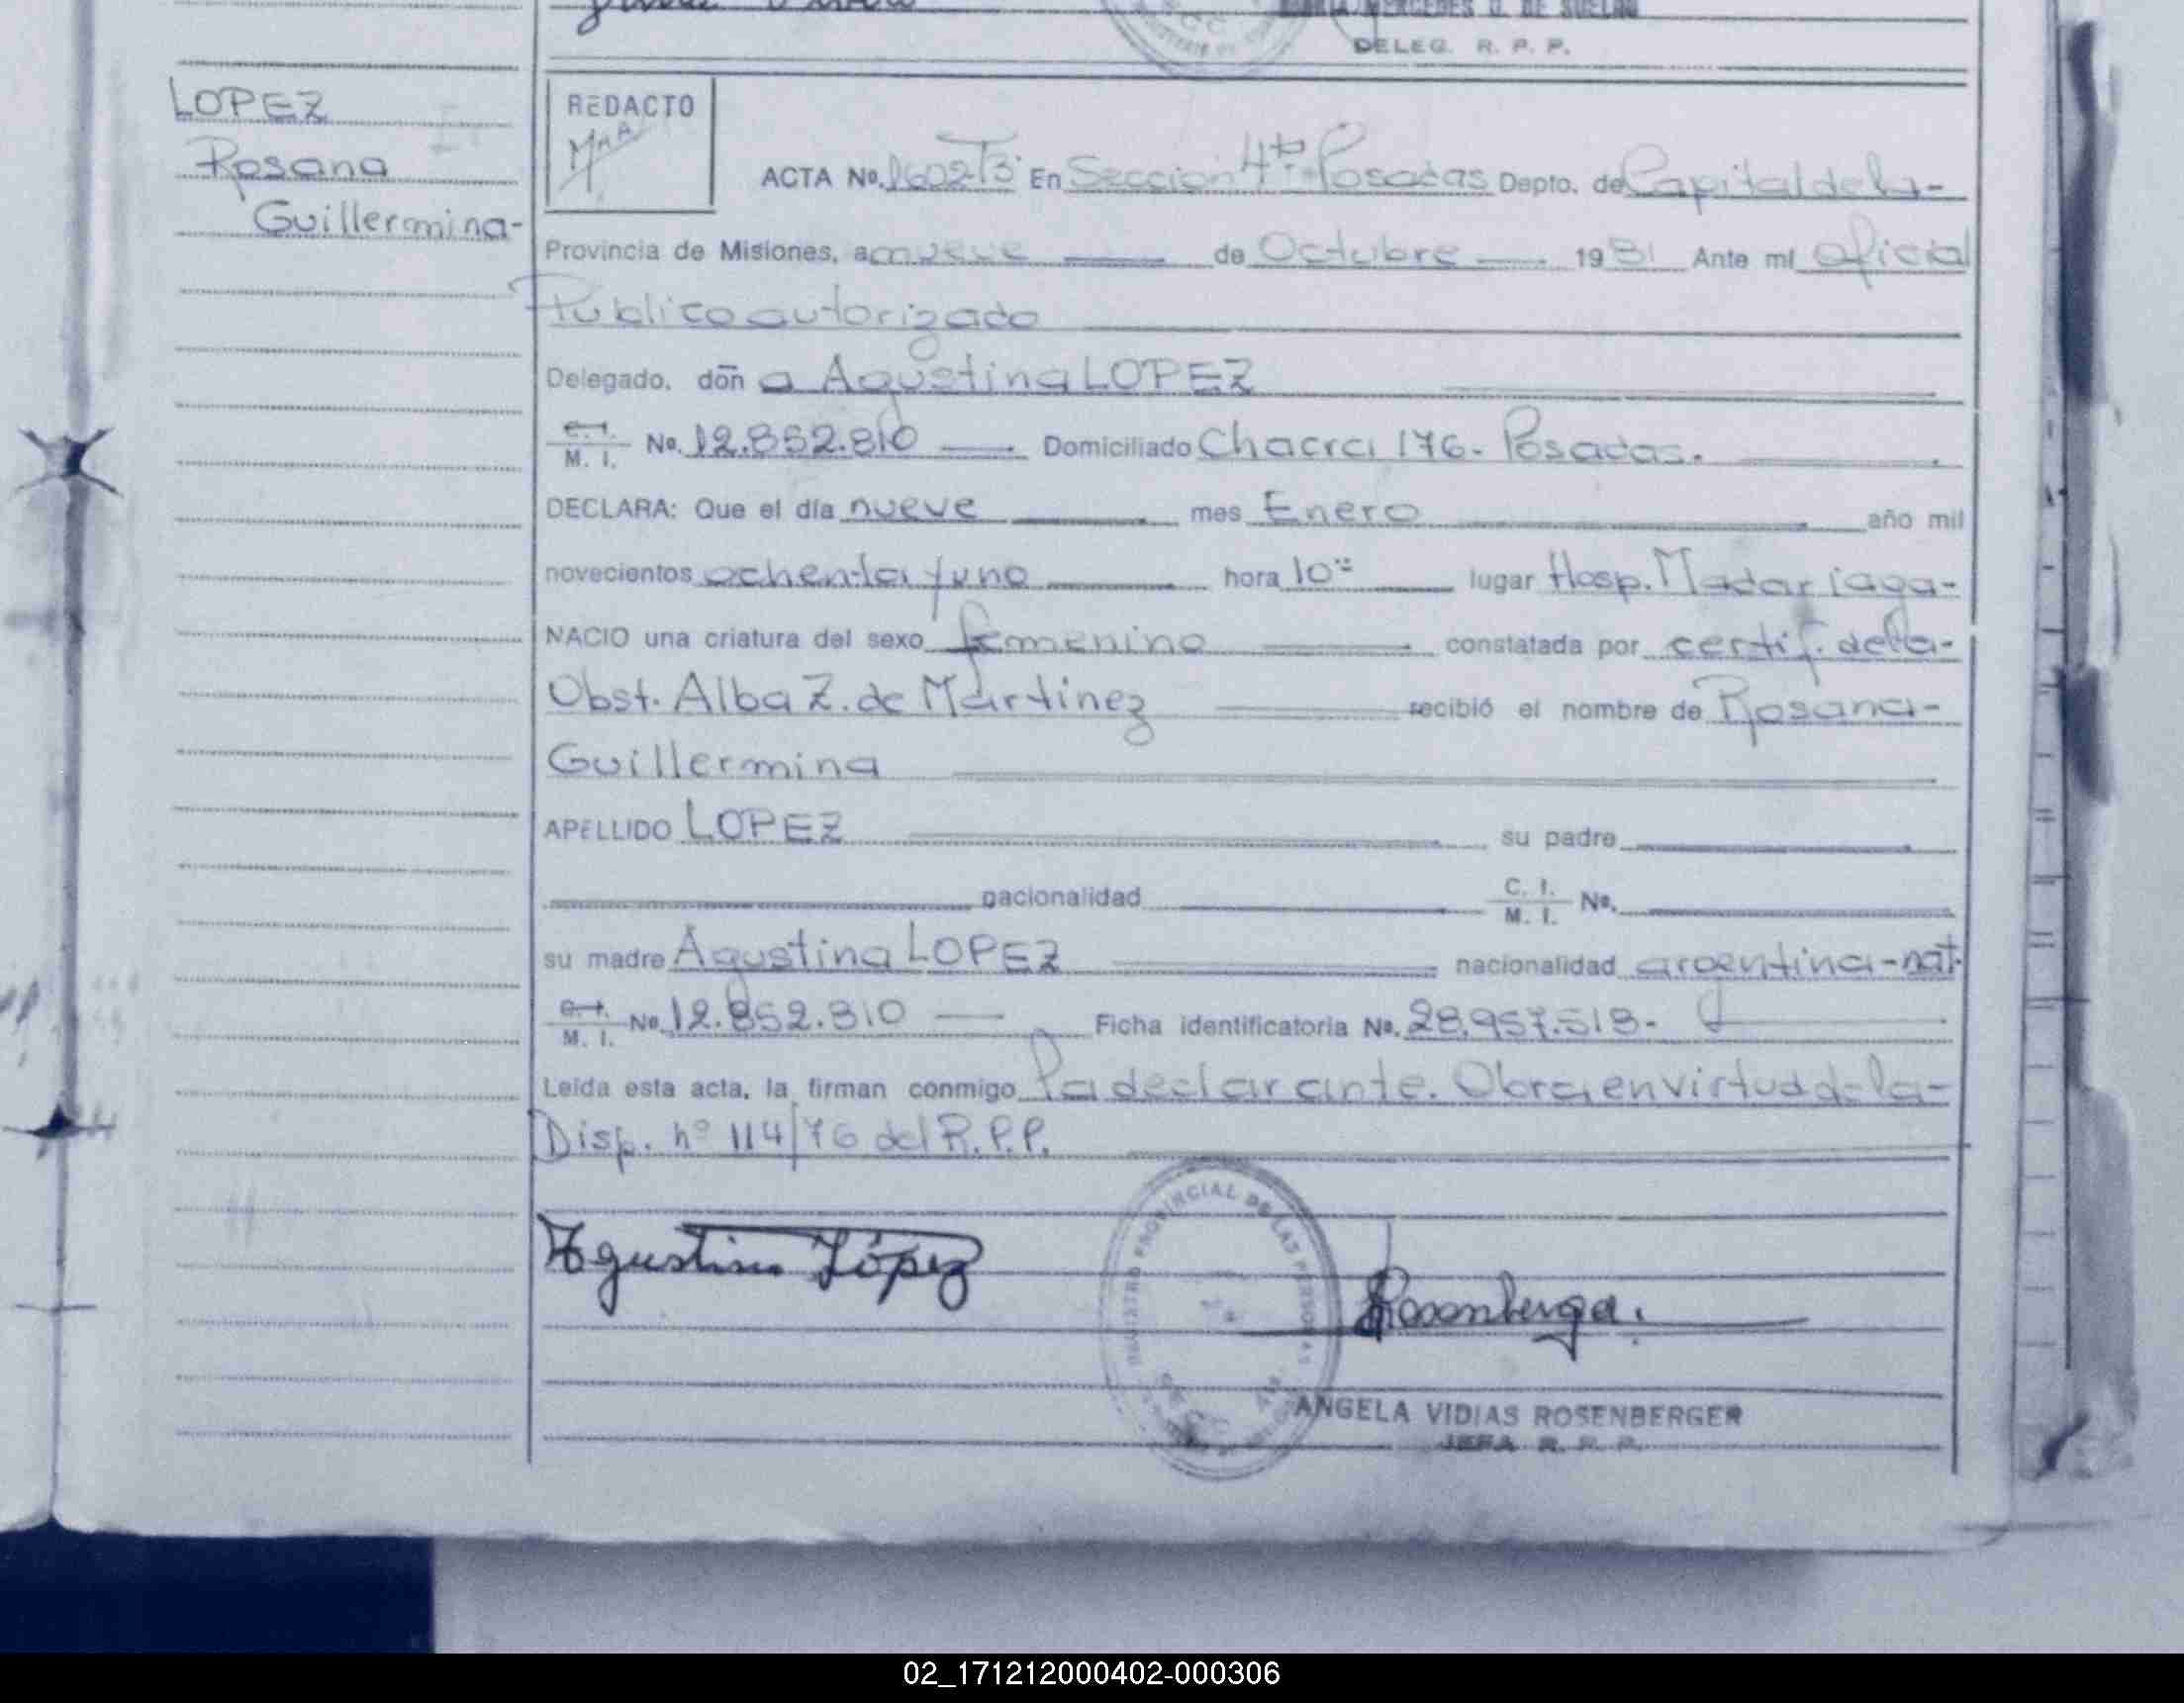 MARIA MERCEDES G. DE SUELDO
DELEG. R. P. P.
LOPEZ
Rosana
Guillermina-
REDACTO
ACTA No. 1602T3 En Sección 4ta Posadas Depto. de Capital de la-
Provincia de Misiones, a nueve de Octubre 1981 Ante mí Oficial
Público autorizado
Delegado, don a Agustina LOPEZ
C. I. M. I. No. 12.852.810 Domiciliado Chacra 176. Posadas.
DECLARA: Que el día nueve mes Enero año mil
novecientos ochenta y uno hora 10 lugar Hosp. Madariaga-
NACIO una criatura del sexo femenino constatada por certif. de la-
Obst. Alba Z. de Martinez recibió el nombre de Rosana-
Guillermina
APELLIDO LOPEZ su padre
nacionalidad C. I. M. I. No.
su madre Agustina LOPEZ nacionalidad argentina-nat.
C. I. M. I. No. 12.852.810 Ficha identificatoria No. 28.957.518.-
Leída esta acta, la firman conmigo la declarante. Obra en virtud de la-
Disp. nº 114/76 del R.P.P.
REGISTRO PROVINCIAL DE LAS PERSONAS
Agustina López
Rosenberger
ANGELA VIDIAS ROSENBERGER
JEFA R. P. P.
02_171212000402-000306